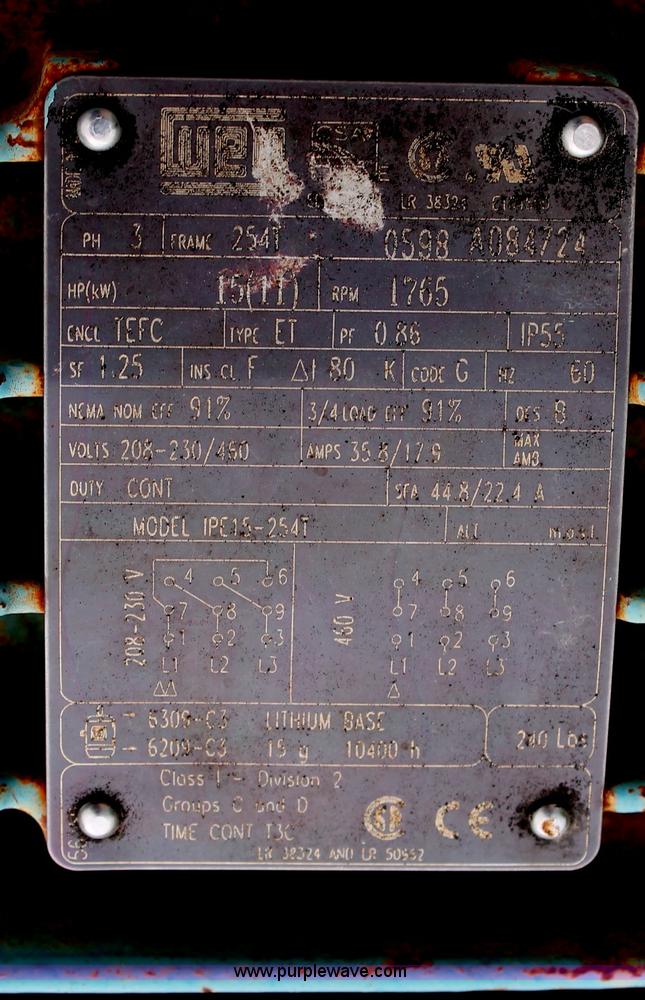 WEG
LR 38324
PH 3 FRAME 254T 0598 A084724
HP(kW) 15(11) RPM 1765
ENCL TEFC TYPE ET PF 0.86 IP55
SF 1.25 INS.CL. F Δt 80 K CODE G HZ 60
NEMA NOM EFF 91% 3/4 LOAD EFF 91% DES B
VOLTS 208-230/460 AMPS 35.8/17.9 MAX AMB.
DUTY CONT SFA 44.8/22.4 A
MODEL IPE15-254T ALT m.a.s.l.
4 5 6 4 5 6
208-230 V 7 8 9 460 V 7 8 9
1 2 3 1 2 3
L1 L2 L3 L1 L2 L3
△△ △
6309-C3 LITHIUM BASE
6209-C3 15 g 10400 h Lbs
Class I - Division 2
Groups C and D
TIME CONT T3C CE
LR 38324 AND LR 50962
www.purplewave.com